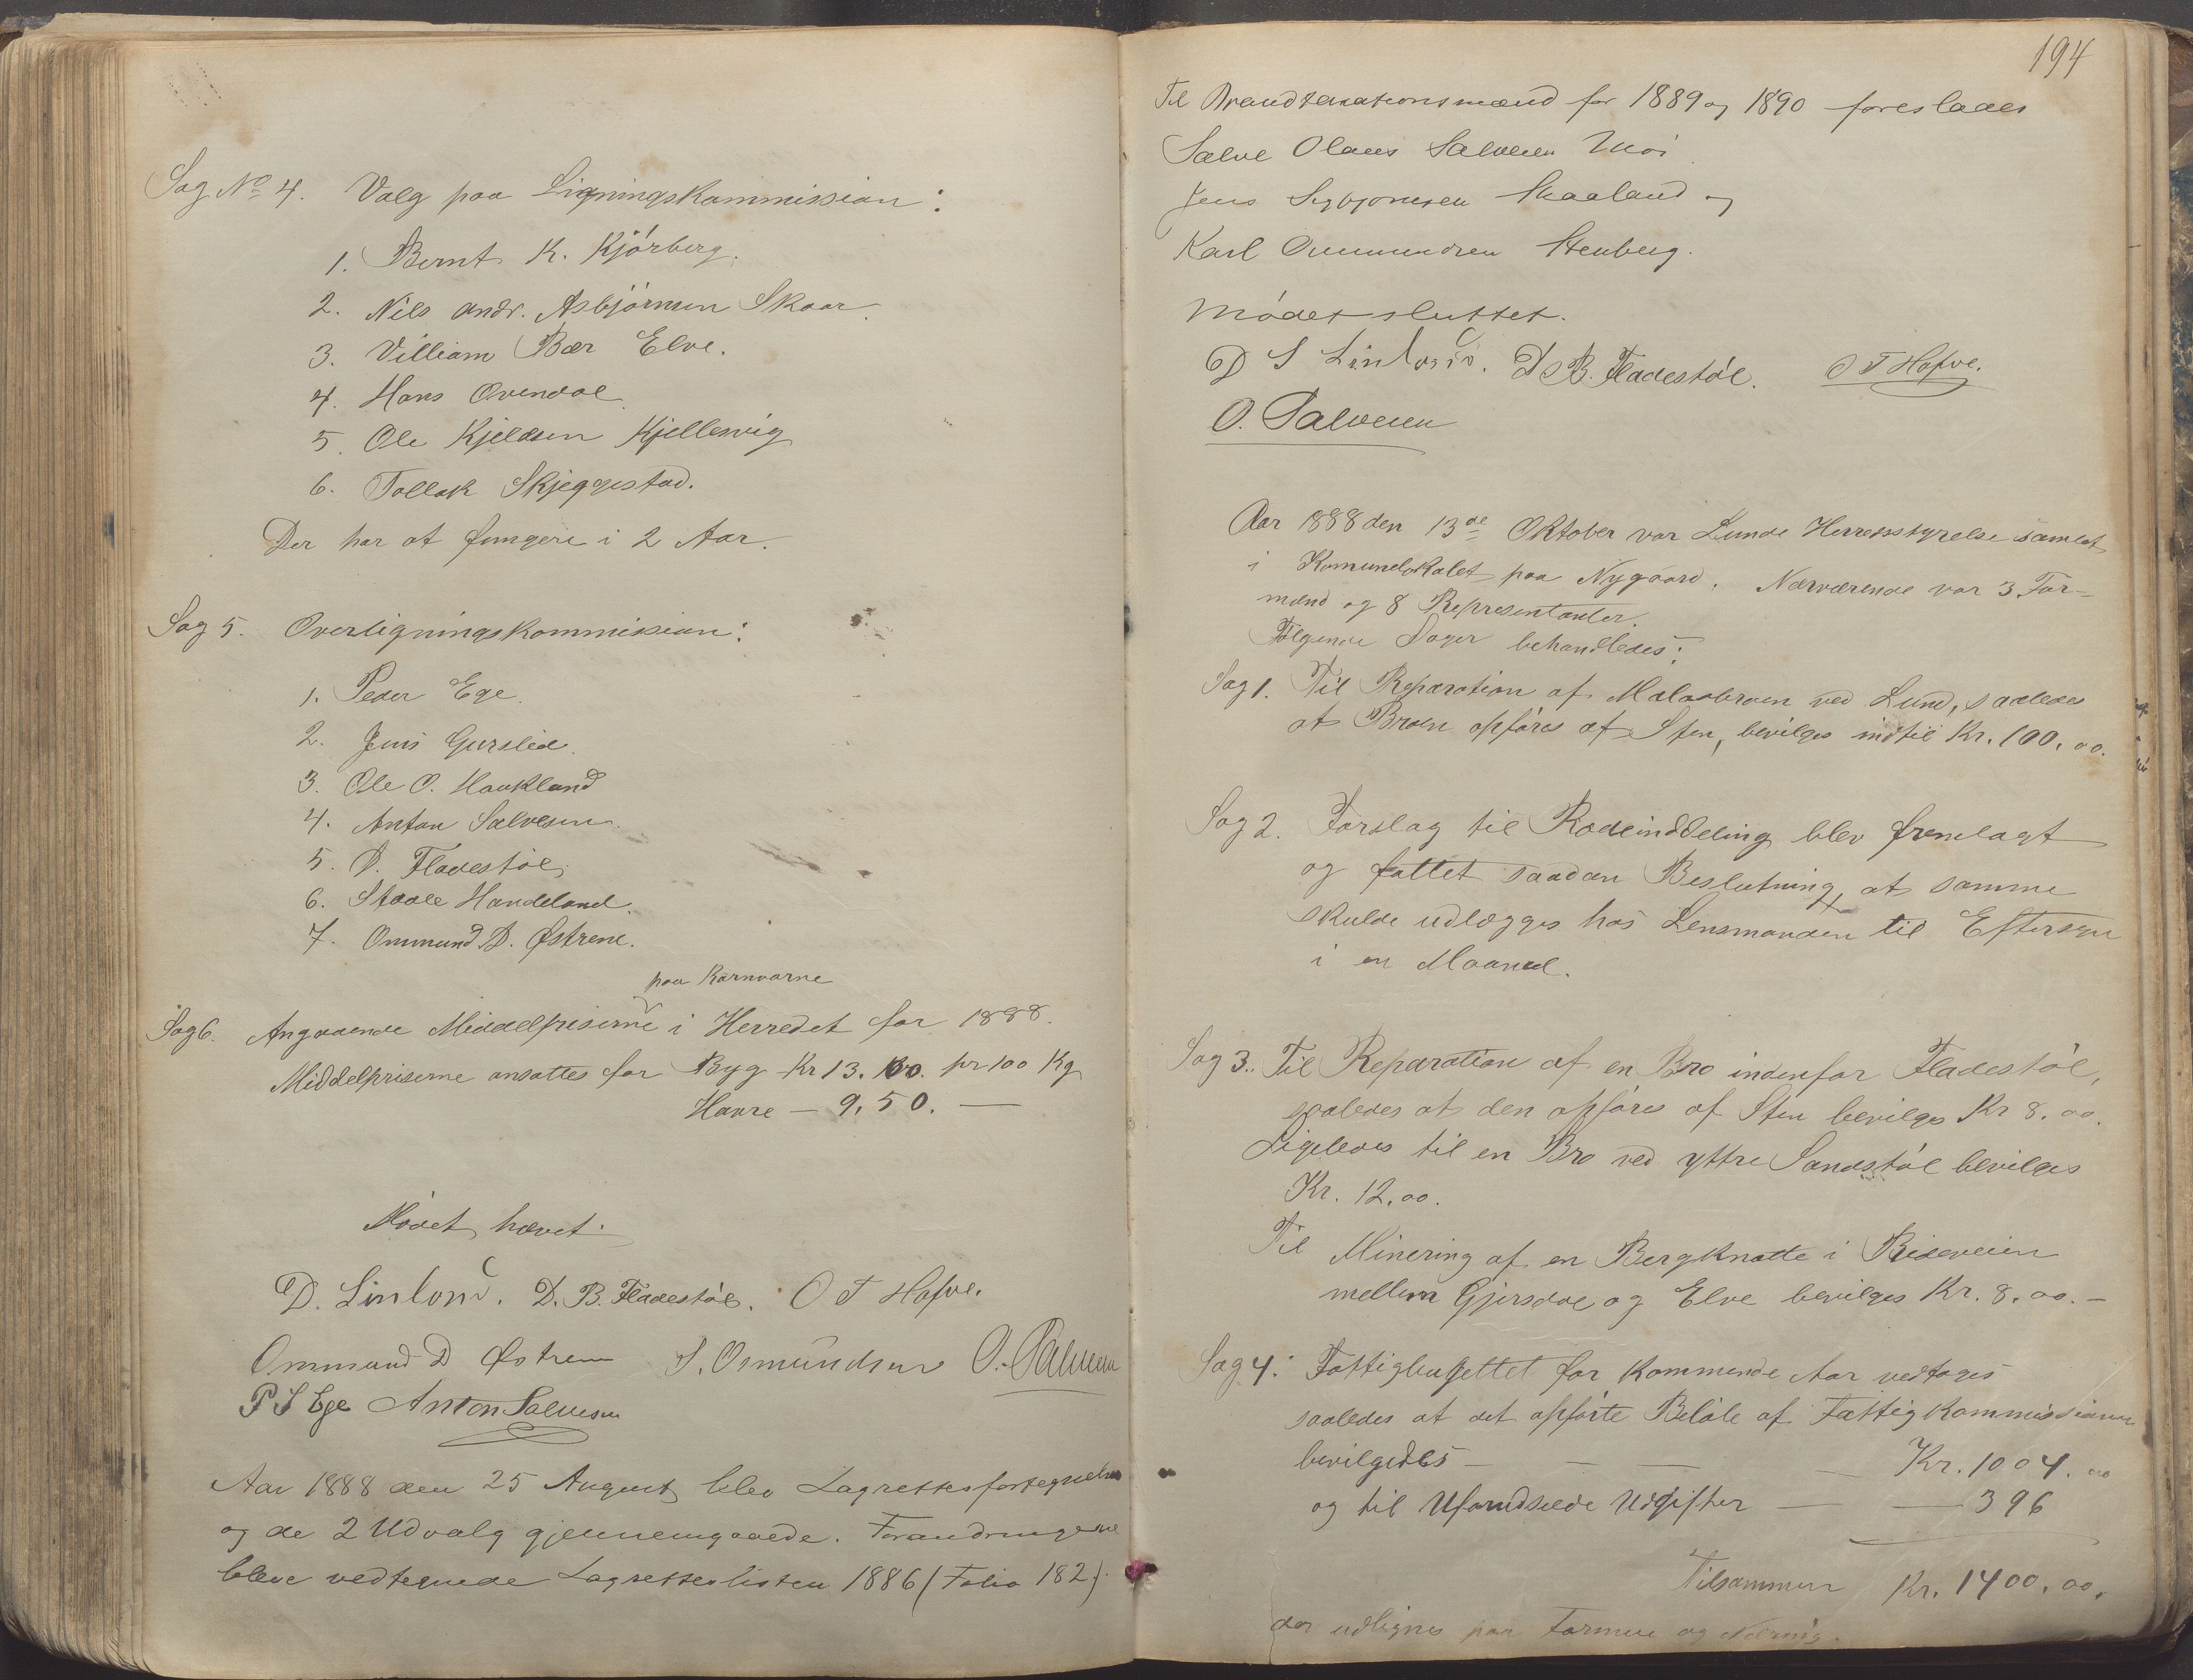 Sag No 4. Valg paa Ligningskommission:
1. Bernt K. Kjörberg.
2. Nils Andr. Asbjörnsen Skaar.
3. Villiam Bær Elve.
4. Hans Ovendal
5. Ole Kjeldsen Kjellesvig
6. Tollak Skjeggestad.
Der har at fungere i 2 Aar.
Sag 5. Overligningskommission:
1. Peder Ege.
2. Jens Gurslid.
3. Ole O. Haukland
4. Anton Salvesen.
5. D. Fladestöl,
6. Staale Handeland.
7. Ommund D. Østrem.
paa Kornvarne
Sag 6. Angaaende Middelpriserne i Herredet for 1888.
Middelpriserne ansattes for Byg Kr 13.00. pr 100 Kg
Havre — 9,50. —
Mödet hævet.
D. Sinlond. D. B. Fladestöl. O T Hofve.
Ommund D Østrem S. Osmundsen O. Salvesen
P S Ege Anton Salvesen
Aar 1888 den 25 August blev Lagrettesfortegnelsen
og de 2 Udvalg gjennemgaaede. Forandringerne
bleve vedtegnede Lagretteslisten 1886 (Folio 182).
194
Til Brandtaxationsmænd for 1889 og 1890 foresloaes
Salve Olaus Salvesen Moi
Jens Sigbjornsen Skaaland og
Karl Ommundsen Stenberg.
Mödet sluttet.
D S Sinlond. D B. Fladestöl. O T Hofve.
O. Salvesen
Aar 1888 den 13de Oktober var Lunde Herredsstyrelse samlet
i Komunelokalet paa Nygaard. Nærværende var 3 For-
mænd og 8 Repræsentanter.
Fölgende Sager behandledes:
Sag 1. Til Reparation af Malaabroen ved Lund, saaledes
at Broen opföres af Sten, bevilges indtil Kr. 100,00.
Sag 2. Forslag til Rodeinddeling blev fremlagt
og fattet saadan Beslutning, at samme
skulde udlægges hos Lensmanden til Eftersyn
i en Maaned.
Sag 3. Til Reparation af en Bro indenfor Fladestöl,
saaledes at den opföres af Sten bevilges Kr 8.00.
Ligeledes til en Bro ved yttre Sandstöl bevilges
Kr. 12,00.
Til Minering af en Bergknatte i Rideveien
mellem Gjersdal og Elve bevilges Kr. 8,00.—
Sag 4. Fattigbudjettet for kommende Aar vedtages
saaledes at det opförte Belöb af Fattigkommissionen
bevilgedes — — — — Kr. 1004.00
og til Uforudseede Udgifter — — 396
Tilsammen Kr. 1400,00.
der udlignes paa Formue og Næring.